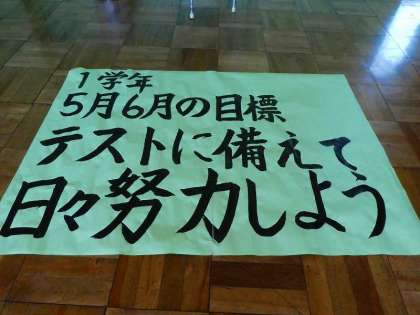 1学年
5月6月の目標
テストに備えて
日々努力しよう